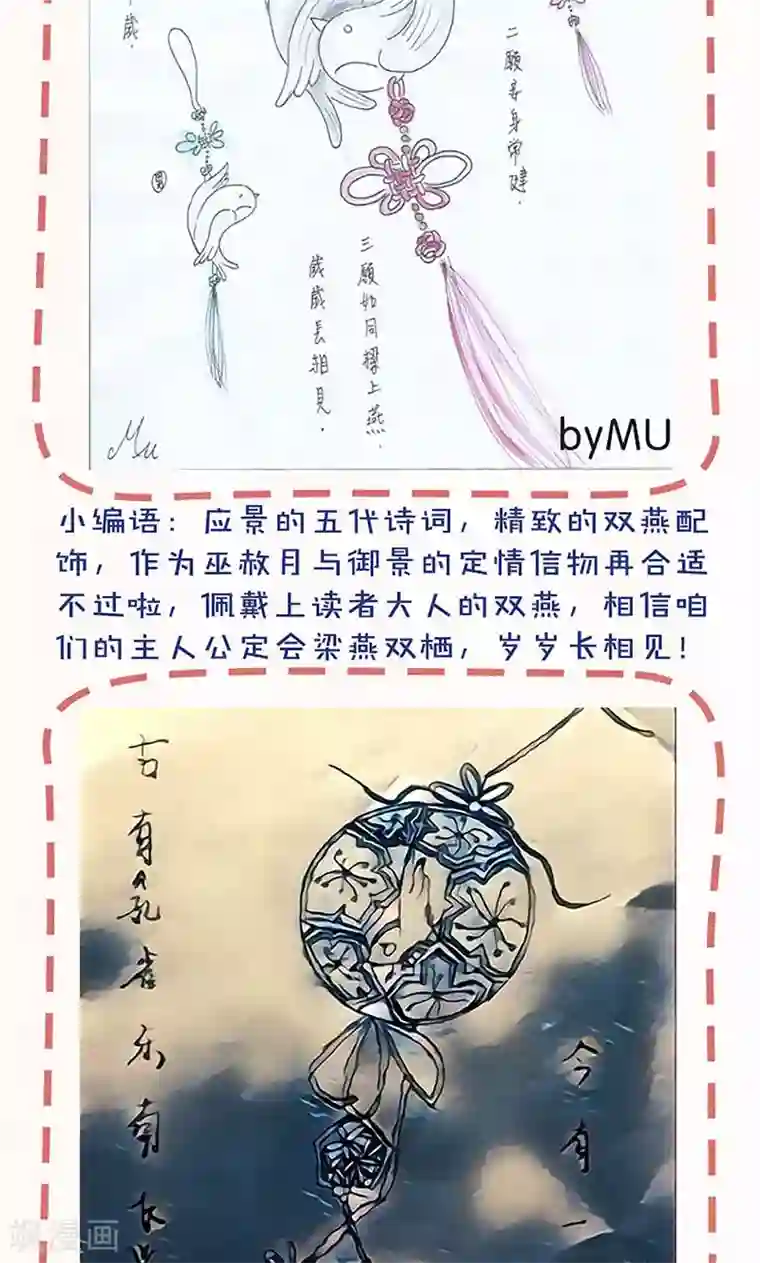 歲．
二願妾身常健．
三願如同樑上燕．
歲歲長相見．
圆
Mu
byMU
小编语：应景的五代诗词，精致的双燕配
饰，作为巫赦月与御景的定情信物再合适
不过啦，佩戴上读者大人的双燕，相信咱
们的主人公定会梁燕双栖，岁岁长相见！
古有孔雀东南
今有一
漫画